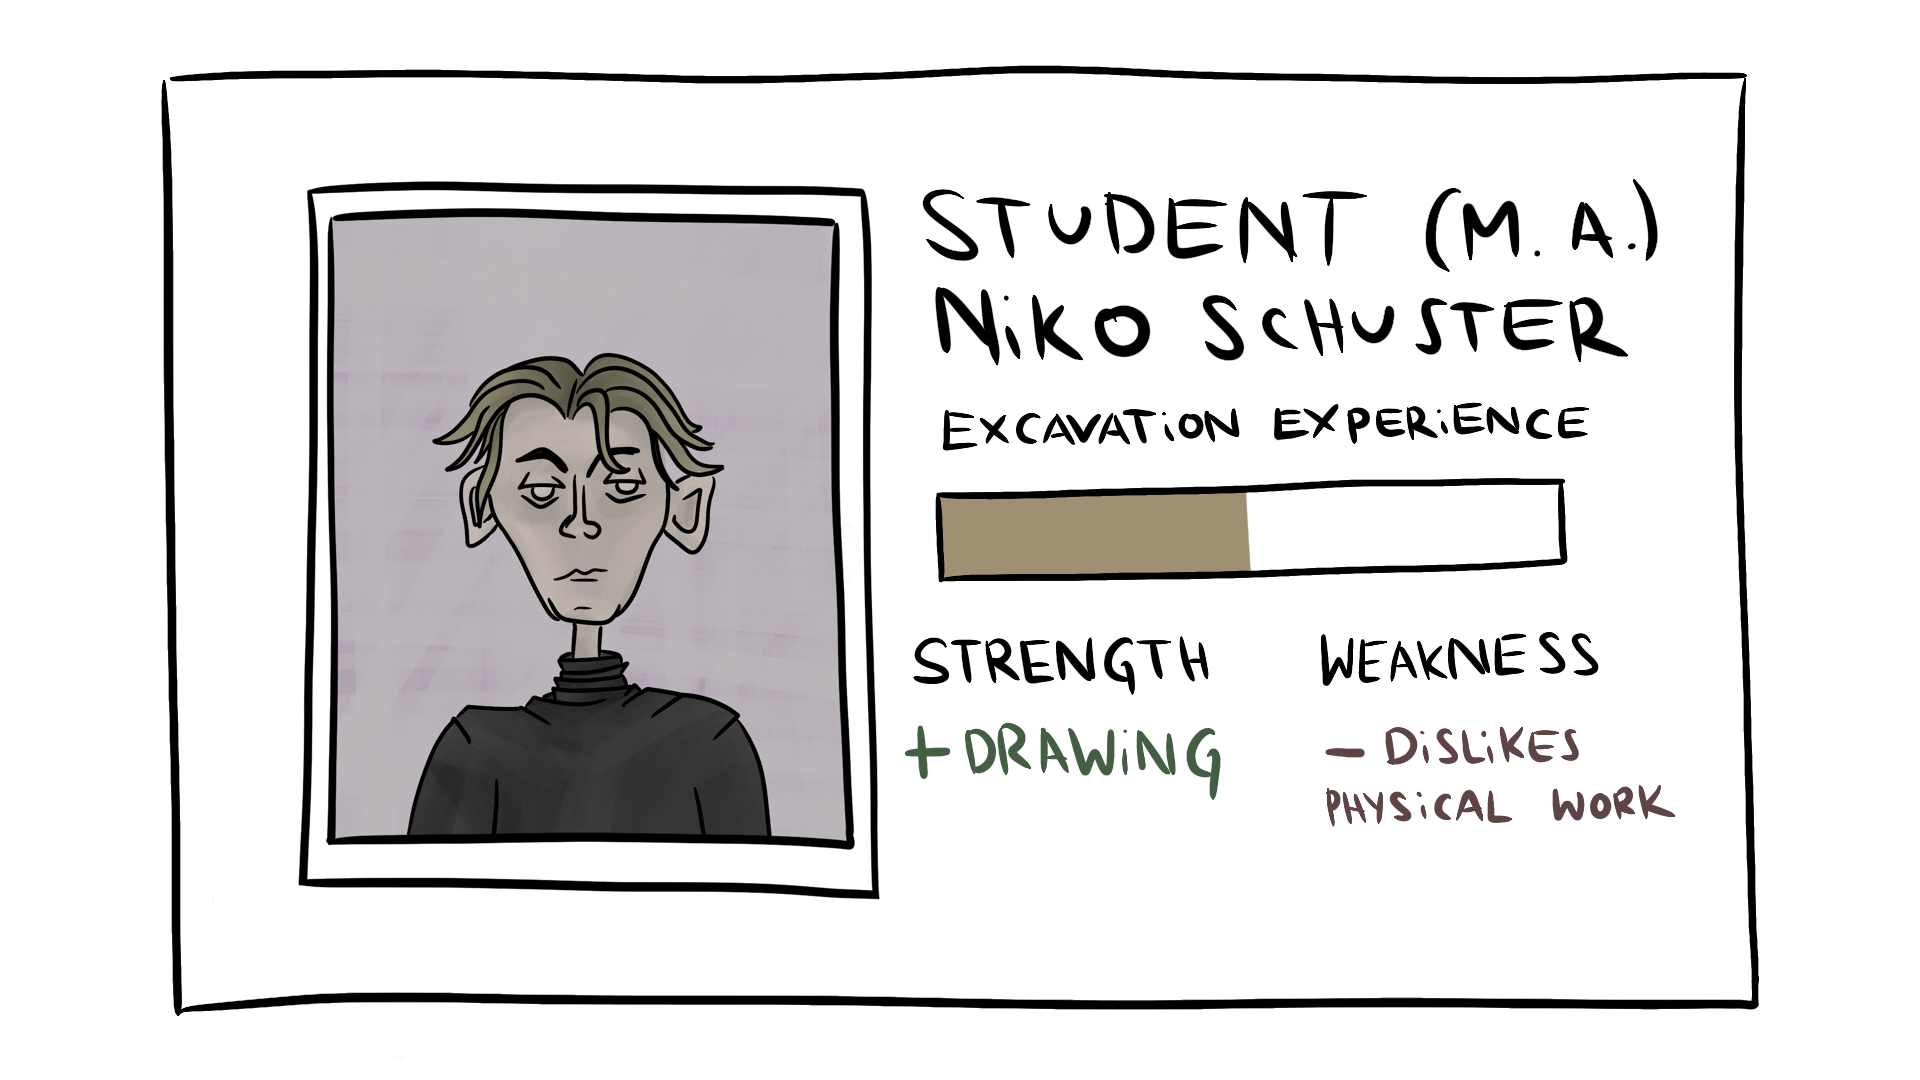 STUDENT (M. A.)
NiKO SCHUSTER
EXCAVATiON EXPERiENCE
STRENGTH WEAKNESS
+ DRAWiNG
- DiSLiKES
PHYSiCAL WORK